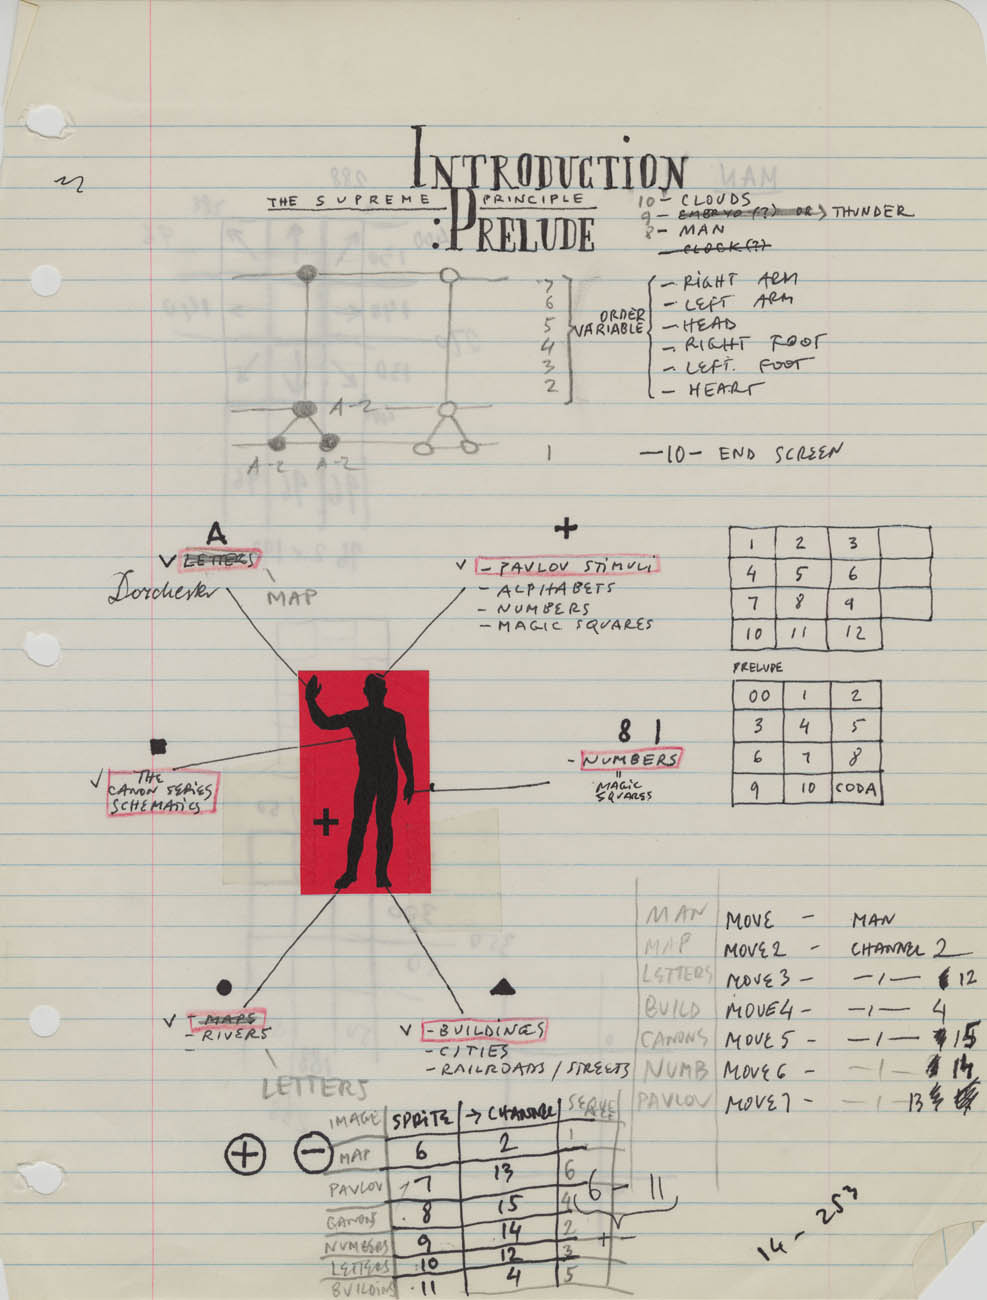 INTRODUCTION
THE SUPREME PRINCIPLE
:PRELUDE
10 - CLOUDS
9 - EMBRYO (?) OR > THUNDER
8 - MAN
- CLOCK (?)
7 - RIGHT ARM
6 - LEFT ARM
5 ORDER VARIABLE - HEAD
4 - RIGHT FOOT
3 - LEFT. FOOT
2 - HEART
A-2
A-2 A-2
1 -10- END SCREEN
A
LETTERS
Dorchester
MAP
+
- PAVLOV STIMULI
- ALPHABETS
- NUMBERS
- MAGIC SQUARES
1 2 3
4 5 6
7 8 9
10 11 12
PRELUDE
00 1 2
3 4 5
6 7 8
9 10 CODA
THE
CANON SERIES
SCHEMATICS
8 1
- NUMBERS
"
MAGIC
SQUARES
+
- MAPS
- RIVERS
-
LETTERS
- BUILDINGS
- CITIES
- RAILROADS / STREETS
MAN MOVE - MAN
MAP MOVE2 - CHANNEL 2
LETTERS MOVE3 - -1- 12
BUILD MOVE4 - -1- 4
CANONS MOVE5 - -1- 15
NUMB MOVE6 - -1- 14
PAVLOV MOVE7 - -1- 13
+ -
IMAGE SPRITE → CHANNEL
MAP 6 2 1
PAVLOV 7 13 6
CANONS 8 15 4
NUMBERS 9 14 2
LETTERS 10 12 3
BUILDING 11 4 5
6 - 11
+ -
14 - 253